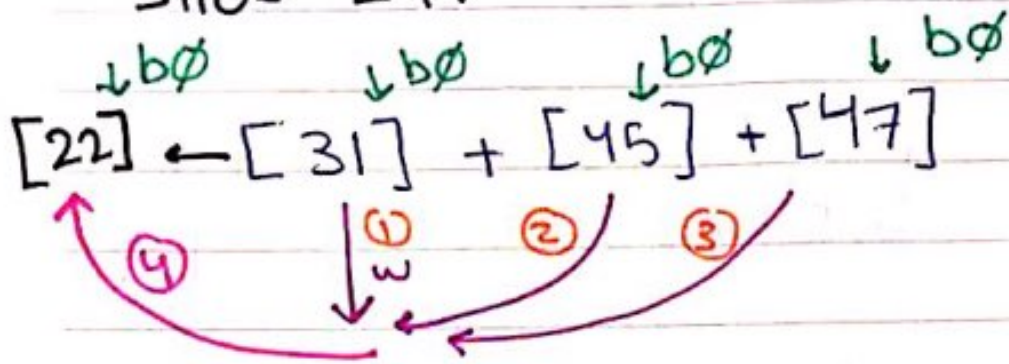 ↓bØ ↓bØ ↓bØ ↓bØ
[22] ← [31] + [45] + [47]
④ ① ② ③
w